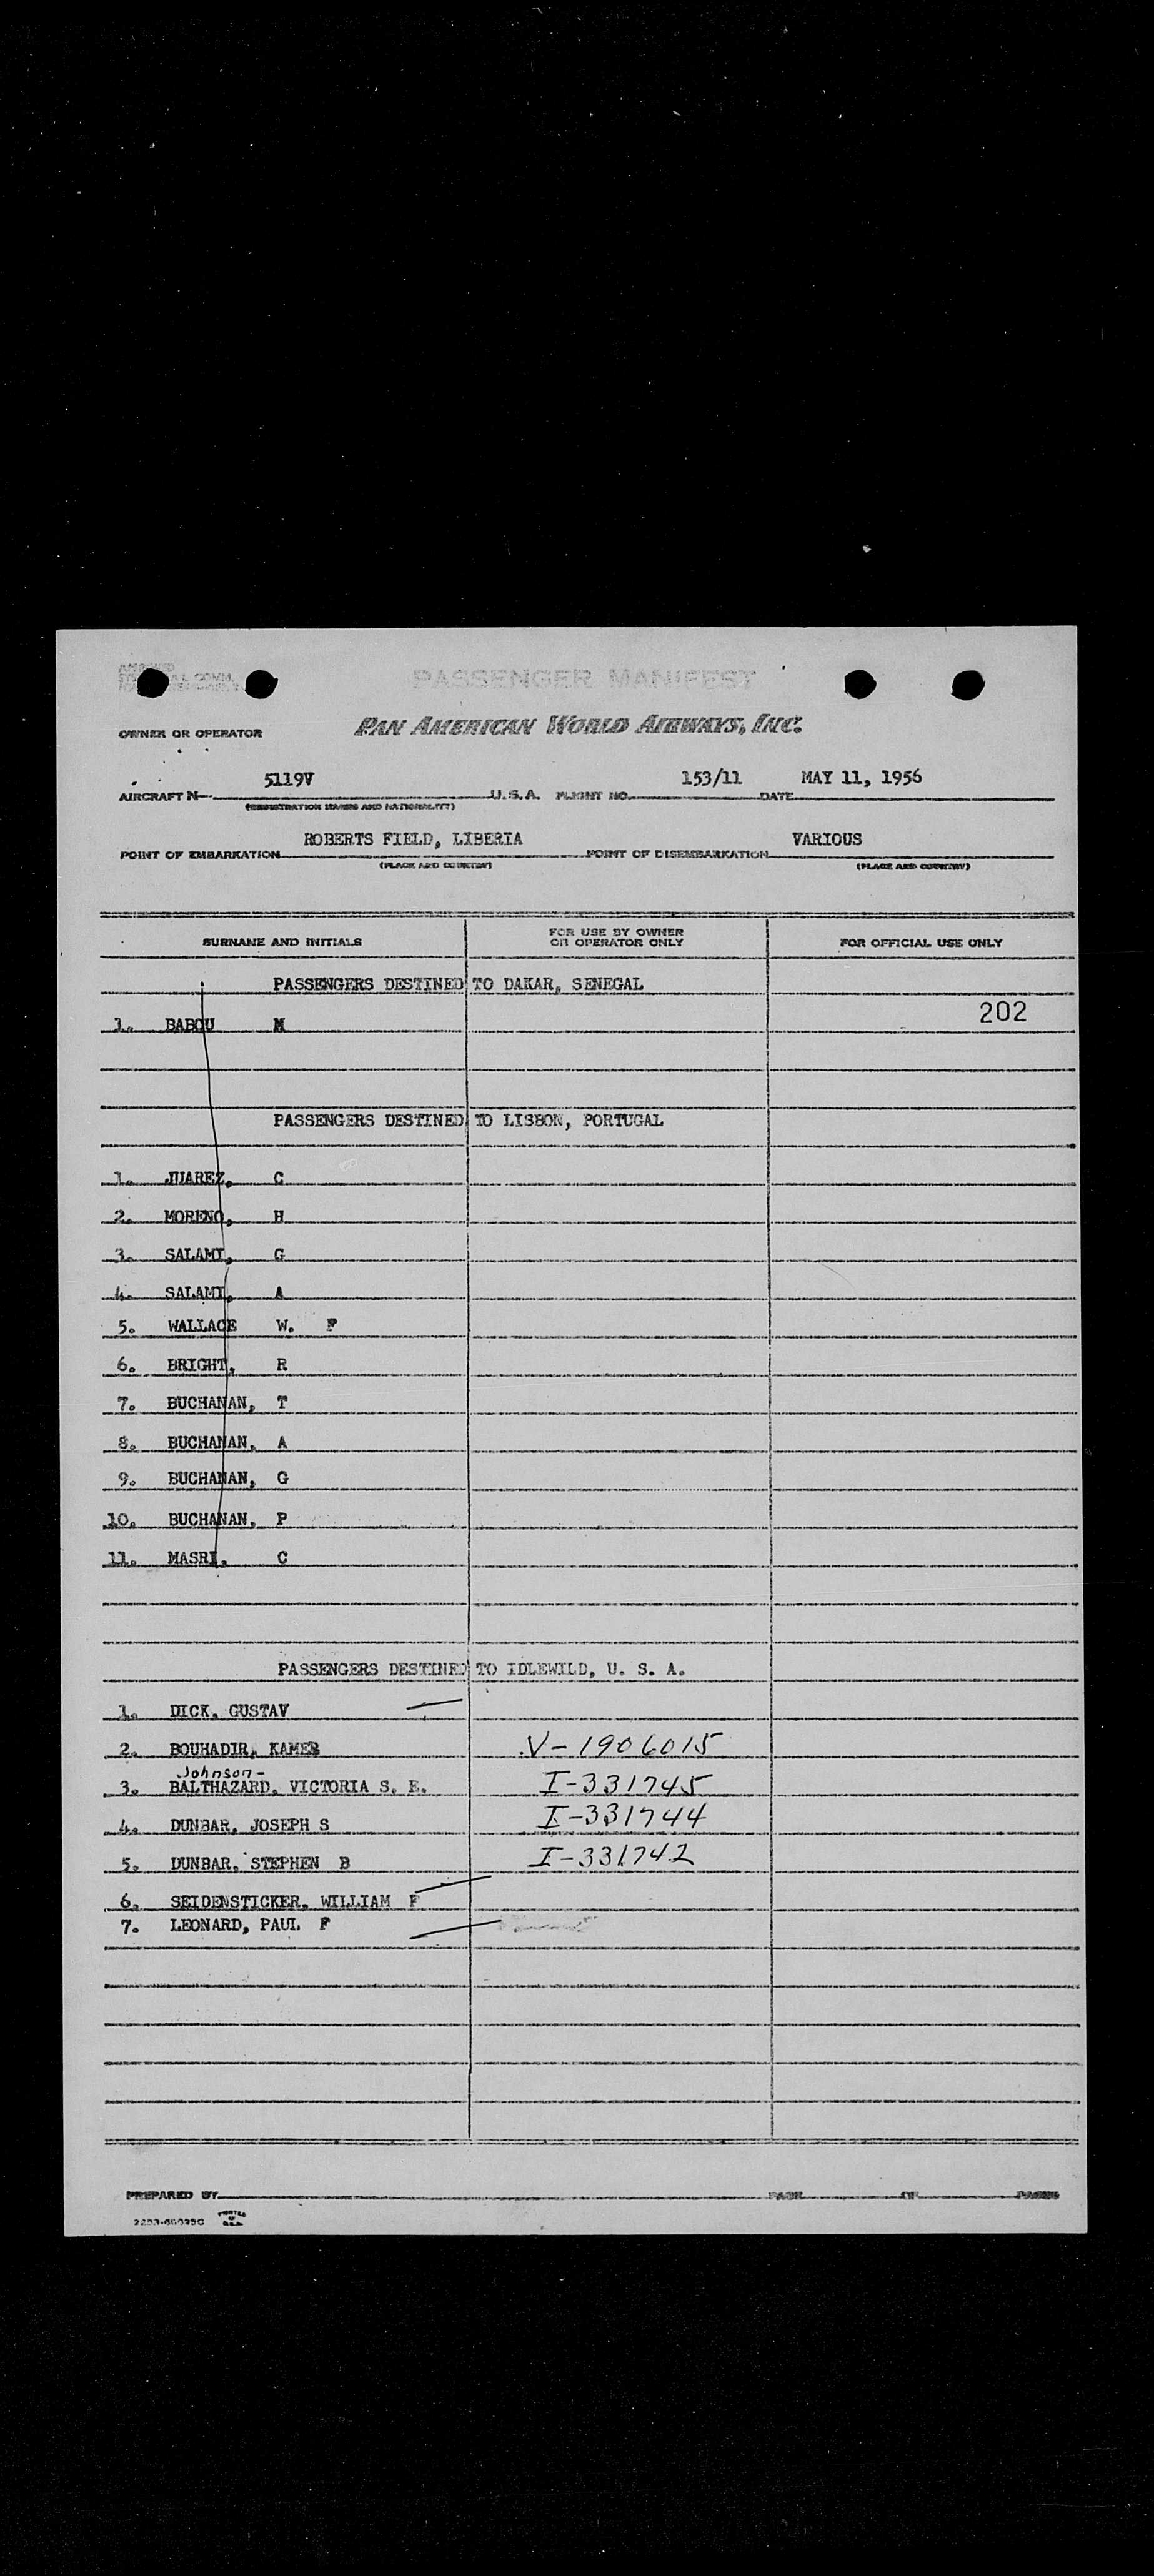 PASSENGER MANIFEST
OWNER OR OPERATOR PAN AMERICAN WORLD AIRWAYS, INC.
AIRCRAFT N- 5119V U.S.A. FLIGHT NO. 153/11 DATE MAY 11, 1956
(REGISTRATION MARKS AND NATIONALITY)
POINT OF EMBARKATION ROBERTS FIELD, LIBERIA POINT OF DISEMBARKATION VARIOUS
(PLACE AND COUNTRY) (PLACE AND COUNTRY)
SURNAME AND INITIALS FOR USE BY OWNER OR OPERATOR ONLY FOR OFFICIAL USE ONLY
PASSENGERS DESTINED TO DAKAR, SENEGAL
1. BABOU M 202
PASSENGERS DESTINED TO LISBON, PORTUGAL
1. JUAREZ, C
2. MORENO, H
3. SALAMI, G
4. SALAMI, A
5. WALLACE W. F
6. BRIGHT, R
7. BUCHANAN, T
8. BUCHANAN, A
9. BUCHANAN, G
10. BUCHANAN, P
11. MASRI, C
PASSENGERS DESTINED TO IDLEWILD, U. S. A.
1. DICK, GUSTAV
2. BOUHADIR, KAMEB V-1906015
Johnson-
3. BALTHAZARD, VICTORIA S. E. I-331745
4. DUNBAR, JOSEPH S I-331744
5. DUNBAR, STEPHEN B I-331742
6. SEIDENSTICKER, WILLIAM F
7. LEONARD, PAUL F
PREPARED BY PAGE OF PAGES